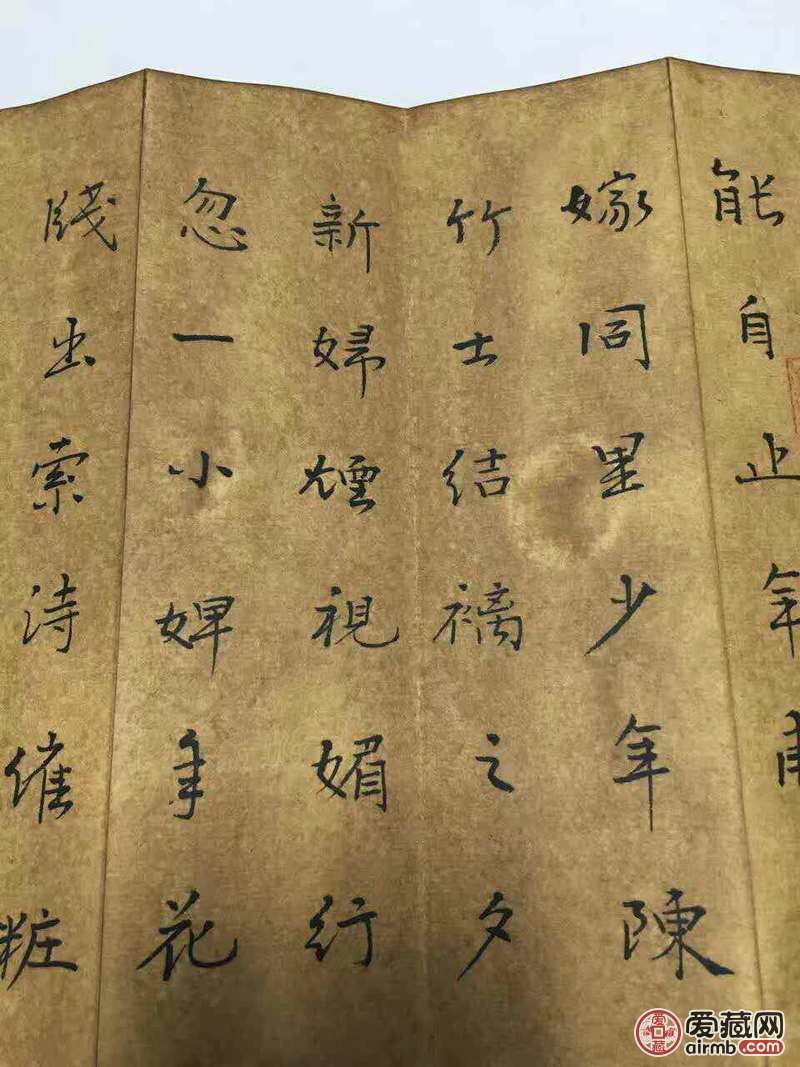 能自止年甫
嫁同里少年陳
竹士結褵之夕
新婦煙視媚行
忽一小婢手花
牋出索詩催粧
爱藏网
airmb.com